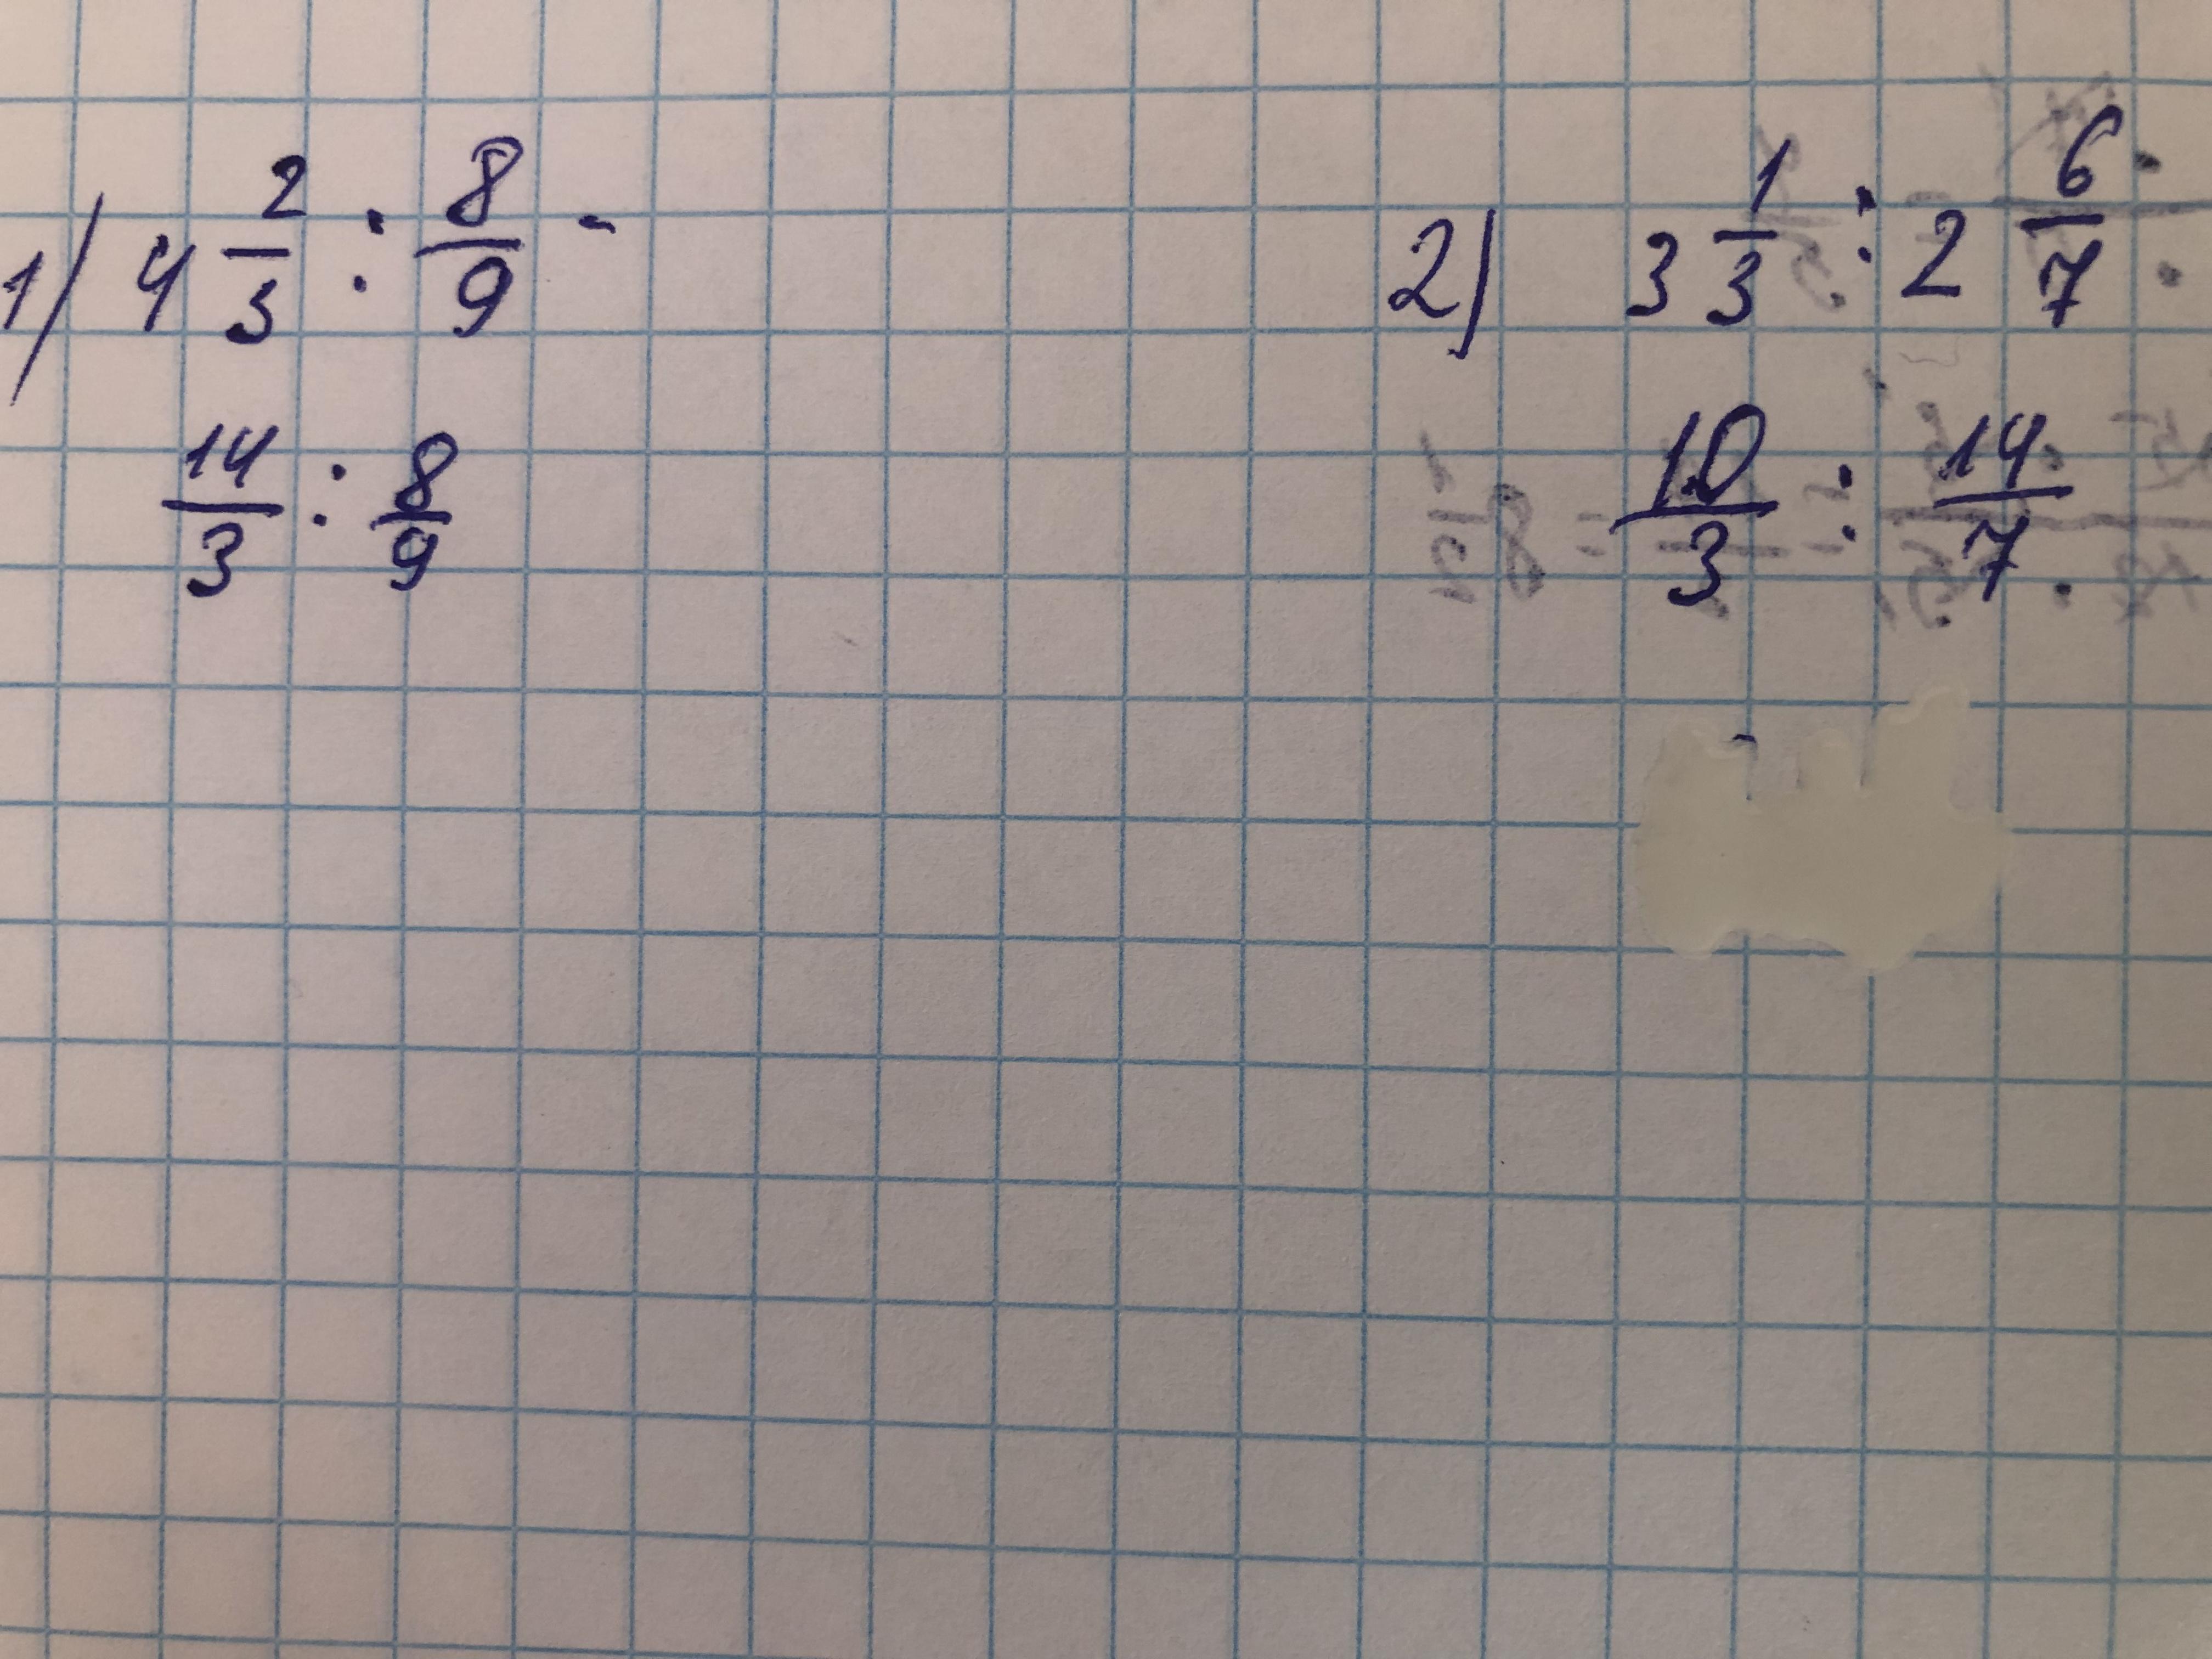 1) 4 2/3 : 8/9 -
14/3 : 8/9
2) 3 1/3 : 2 6/7
10/3 : 14/7